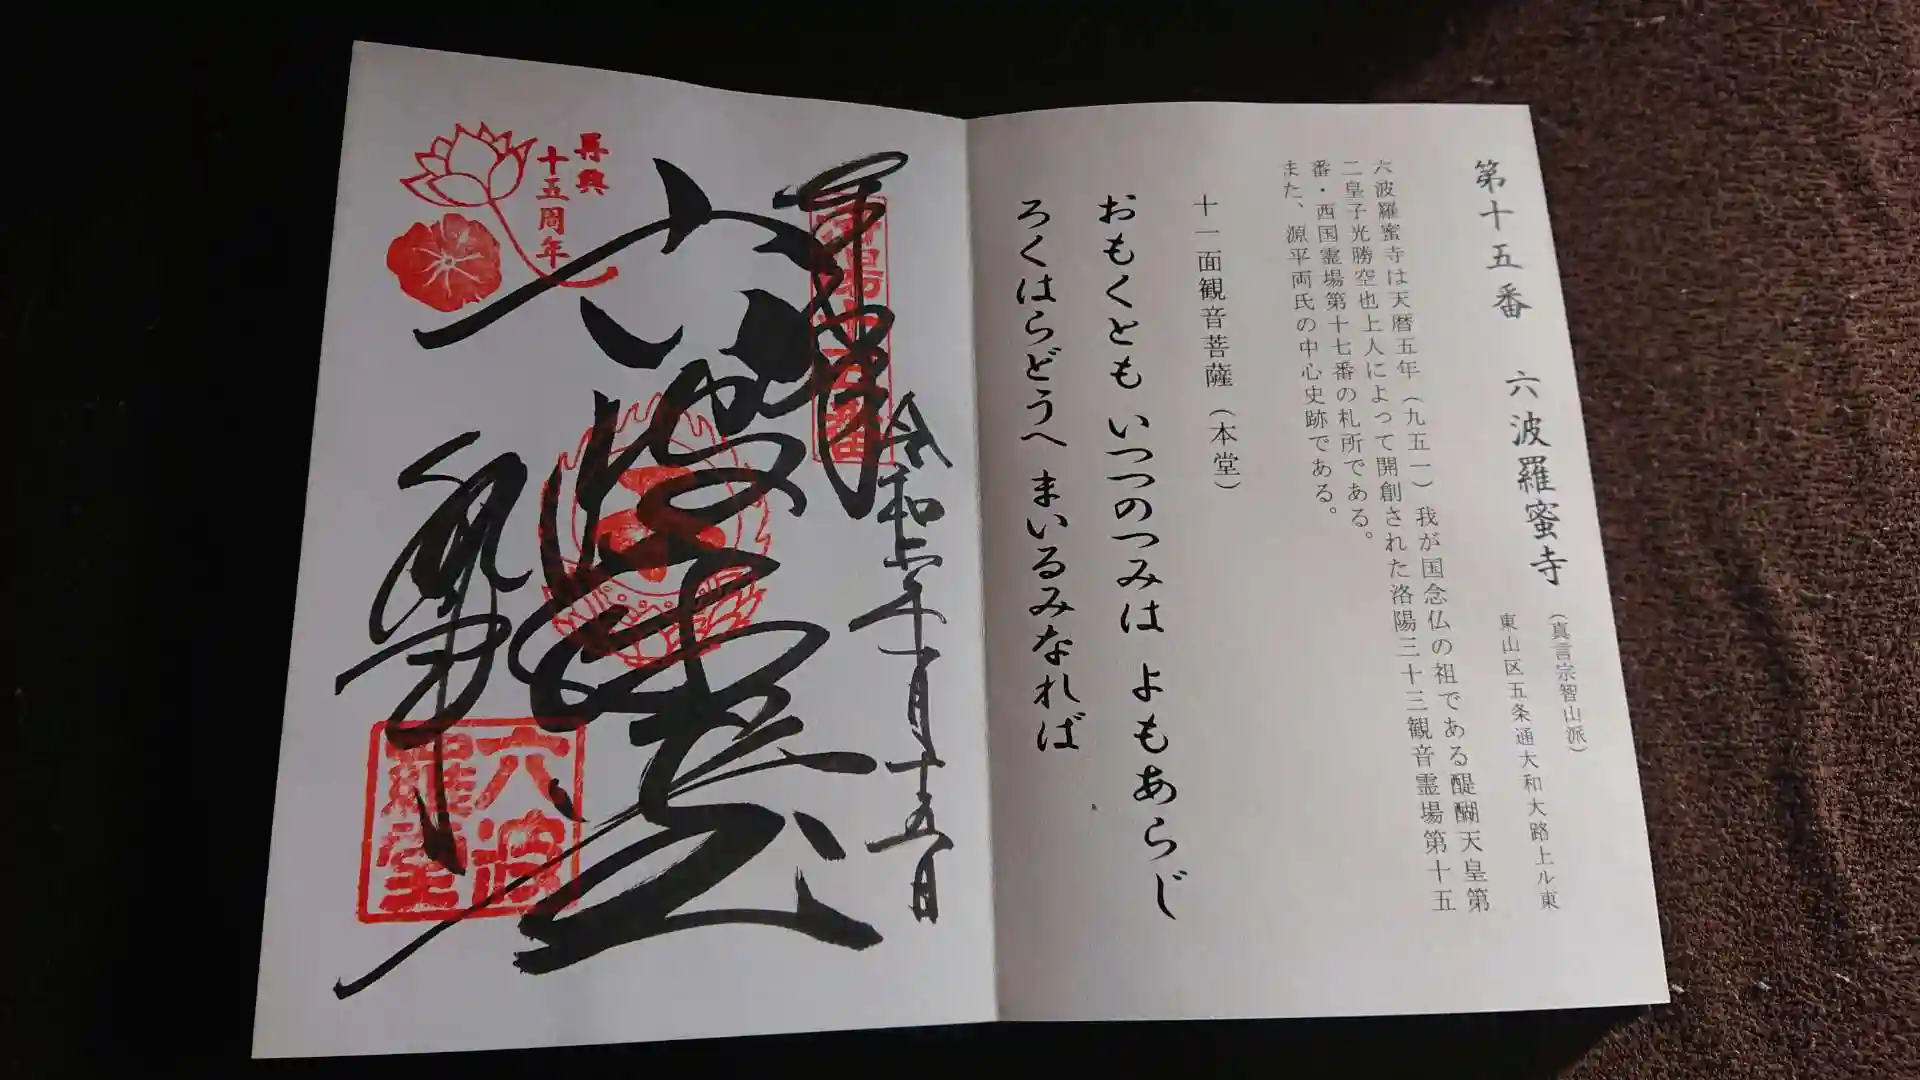 第十五番 六波羅蜜寺
(真言宗智山派)
東山区五条通大和大路上ル東
六波羅蜜寺は天暦五年(九五一)我が国念仏の祖である醍醐天皇第
二皇子光勝空也上人によって開創された洛陽三十三観音霊場第十五
番・西国霊場第十七番の札所である。
また、源平両氏の中心史跡である。
十一面観音菩薩(本堂)
おもくとも いつつのつみは よもあらじ
ろくはらどうへ まいるみなれば
令和二年一月十五日
奉拝
六波羅堂
再興
十五周年
六波
羅堂